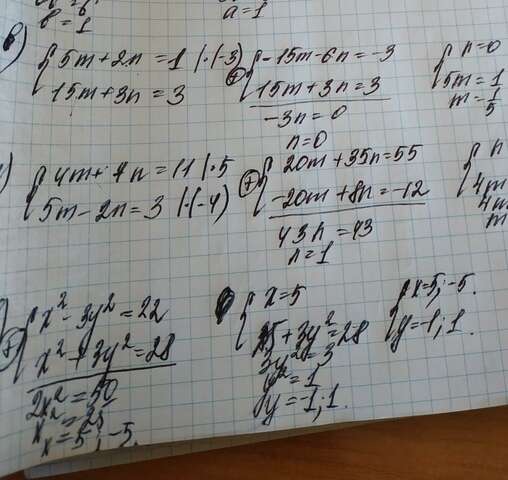 b=1
a=1
в) 5m+2n=1 |·(-3)
15m+3n=3
+ -15m-6n=-3
15m+3n=3
-3n=0
n=0
n=0
5m=1
m=1/5
4m+7n=11 |·5
5m-2n=3 |·(-4)
+ 20m+35n=55
-20m+8n=-12
43n=43
n=1
n
4m
4m
m
+ x²-3y²=22
x²+3y²=28
2x²=50
x²=25
x=5;-5.
x=5
25+3y²=28
3y²=3
y²=1
y=-1,1.
x=5;-5.
y=-1;1.